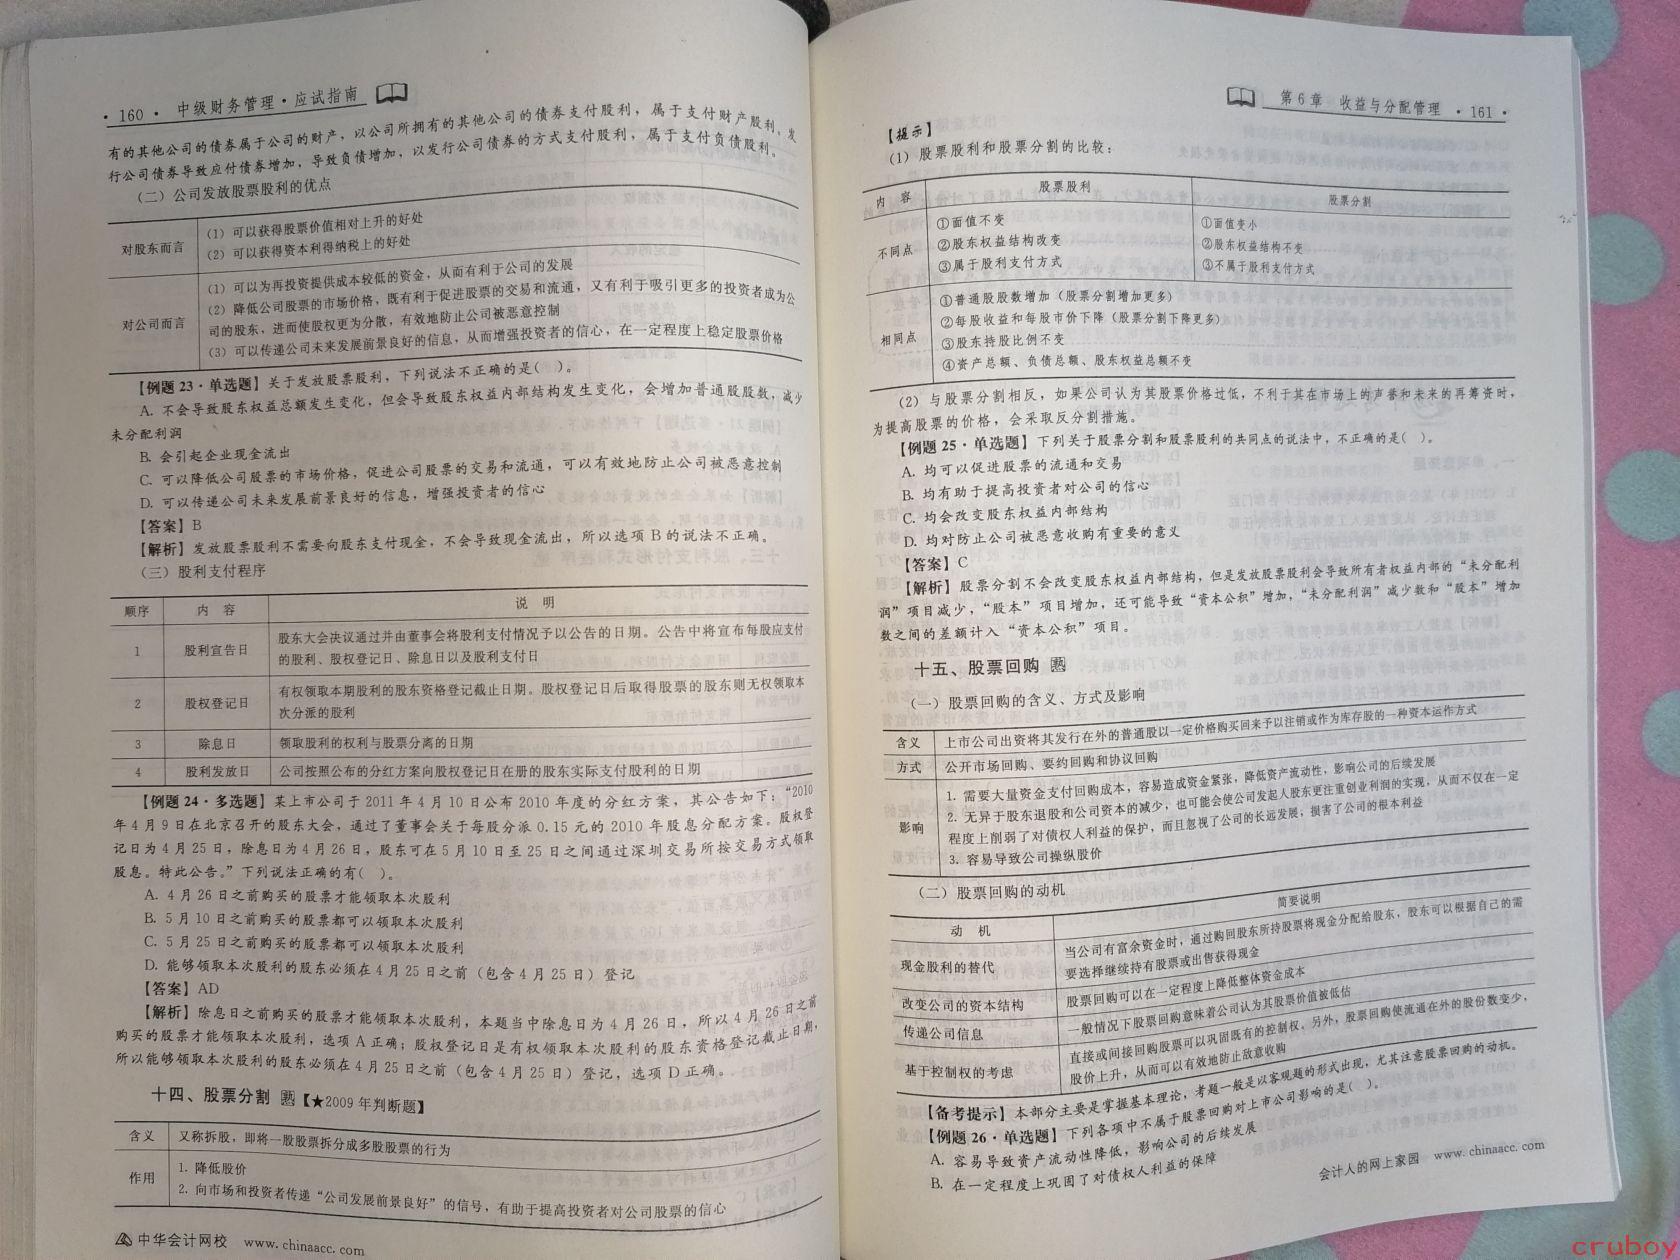 · 160 · 中级财务管理·应试指南
有的其他公司的债券属于公司的财产，以公司所拥有的其他公司的债券支付股利，属于支付财产股利。发
行公司债券导致应付债券增加，导致负债增加，以发行公司债券的方式支付股利，属于支付负债股利。
（二）公司发放股票股利的优点
对股东而言
（1）可以获得股票价值相对上升的好处
（2）可以获得资本利得纳税上的好处
对公司而言
（1）可以为再投资提供成本较低的资金，从而有利于公司的发展
（2）降低公司股票的市场价格，既有利于促进股票的交易和流通，又有利于吸引更多的投资者成为公
司的股东，进而使股权更为分散，有效地防止公司被恶意控制
（3）可以传递公司未来发展前景良好的信息，从而增强投资者的信心，在一定程度上稳定股票价格
【例题 23·单选题】关于发放股票股利，下列说法不正确的是（ ）。
A. 不会导致股东权益总额发生变化，但会导致股东权益内部结构发生变化，会增加普通股股数，减少
未分配利润
B. 会引起企业现金流出
C. 可以降低公司股票的市场价格，促进公司股票的交易和流通，可以有效地防止公司被恶意控制
D. 可以传递公司未来发展前景良好的信息，增强投资者的信心
【答案】B
【解析】发放股票股利不需要向股东支付现金，不会导致现金流出，所以选项 B 的说法不正确。
（三）股利支付程序
顺序 内 容 说 明
1 股利宣告日 股东大会决议通过并由董事会将股利支付情况予以公告的日期。公告中将宣布每股应支付
的股利、股权登记日、除息日以及股利支付日
2 股权登记日 有权领取本期股利的股东资格登记截止日期。股权登记日后取得股票的股东则无权领取本
次分派的股利
3 除息日 领取股利的权利与股票分离的日期
4 股利发放日 公司按照公布的分红方案向股权登记日在册的股东实际支付股利的日期
【例题 24·多选题】某上市公司于 2011 年 4 月 10 日公布 2010 年度的分红方案，其公告如下：“2010
年 4 月 9 日在北京召开的股东大会，通过了董事会关于每股分派 0.15 元的 2010 年股息分配方案。股权登
记日为 4 月 25 日，除息日为 4 月 26 日，股东可在 5 月 10 日至 25 日之间通过深圳交易所按交易方式领取
股息。特此公告。”下列说法正确的有（ ）。
A. 4 月 26 日之前购买的股票才能领取本次股利
B. 5 月 10 日之前购买的股票都可以领取本次股利
C. 5 月 25 日之前购买的股票都可以领取本次股利
D. 能够领取本次股利的股东必须在 4 月 25 日之前（包含 4 月 25 日）登记
【答案】AD
【解析】除息日之前购买的股票才能领取本次股利，本题当中除息日为 4 月 26 日，所以 4 月 26 日之前
购买的股票才能领取本次股利，选项 A 正确；股权登记日是有权领取本次股利的股东资格登记截止日期，
所以能够领取本次股利的股东必须在 4 月 25 日之前（包含 4 月 25 日）登记，选项 D 正确。
十四、股票分割 熟【★2009 年判断题】
含义 又称拆股，即将一股股票拆分成多股股票的行为
作用
1. 降低股价
2. 向市场和投资者传递“公司发展前景良好”的信号，有助于提高投资者对公司股票的信心
中华会计网校 www.chinaacc.com
第 6 章 收益与分配管理 · 161 ·
【提示】
（1）股票股利和股票分割的比较：
内 容 股票股利 股票分割
不同点
①面值不变 ①面值变小
②股东权益结构改变 ②股东权益结构不变
③属于股利支付方式 ③不属于股利支付方式
相同点
①普通股股数增加（股票分割增加更多）
②每股收益和每股市价下降（股票分割下降更多）
③股东持股比例不变
④资产总额、负债总额、股东权益总额不变
（2）与股票分割相反，如果公司认为其股票价格过低，不利于其在市场上的声誉和未来的再筹资时，
为提高股票的价格，会采取反分割措施。
【例题 25·单选题】下列关于股票分割和股票股利的共同点的说法中，不正确的是（ ）。
A. 均可以促进股票的流通和交易
B. 均有助于提高投资者对公司的信心
C. 均会改变股东权益内部结构
D. 均对防止公司被恶意收购有重要的意义
【答案】C
【解析】股票分割不会改变股东权益内部结构，但是发放股票股利会导致所有者权益内部的“未分配利
润”项目减少，“股本”项目增加，还可能导致“资本公积”增加，“未分配利润”减少数和“股本”增加
数之间的差额计入“资本公积”项目。
十五、股票回购 熟
（一）股票回购的含义、方式及影响
含义 上市公司出资将其发行在外的普通股以一定价格购买回来予以注销或作为库存股的一种资本运作方式
方式 公开市场回购、要约回购和协议回购
影响
1. 需要大量资金支付回购成本，容易造成资金紧张，降低资产流动性，影响公司的后续发展
2. 无异于股东退股和公司资本的减少，也可能会使公司发起人股东更注重创业利润的实现，从而不仅在一定
程度上削弱了对债权人利益的保护，而且忽视了公司的长远发展，损害了公司的根本利益
3. 容易导致公司操纵股价
（二）股票回购的动机
动 机 简要说明
现金股利的替代 当公司有富余资金时，通过购回股东所持股票将现金分配给股东，股东可以根据自己的需
要选择继续持有股票或出售获得现金
改变公司的资本结构 股票回购可以在一定程度上降低整体资金成本
传递公司信息 一般情况下股票回购意味着公司认为其股票价值被低估
基于控制权的考虑 直接或间接回购股票可以巩固既有的控制权。另外，股票回购使流通在外的股份数变少，
股价上升，从而可以有效地防止敌意收购
【备考提示】本部分主要是掌握基本理论，考题一般是以客观题的形式出现，尤其注意股票回购的动机。
【例题 26·单选题】下列各项中不属于股票回购对上市公司影响的是（ ）。
A. 容易导致资产流动性降低，影响公司的后续发展
B. 在一定程度上巩固了对债权人利益的保障
会计人的网上家园 www.chinaacc.com
cruboy